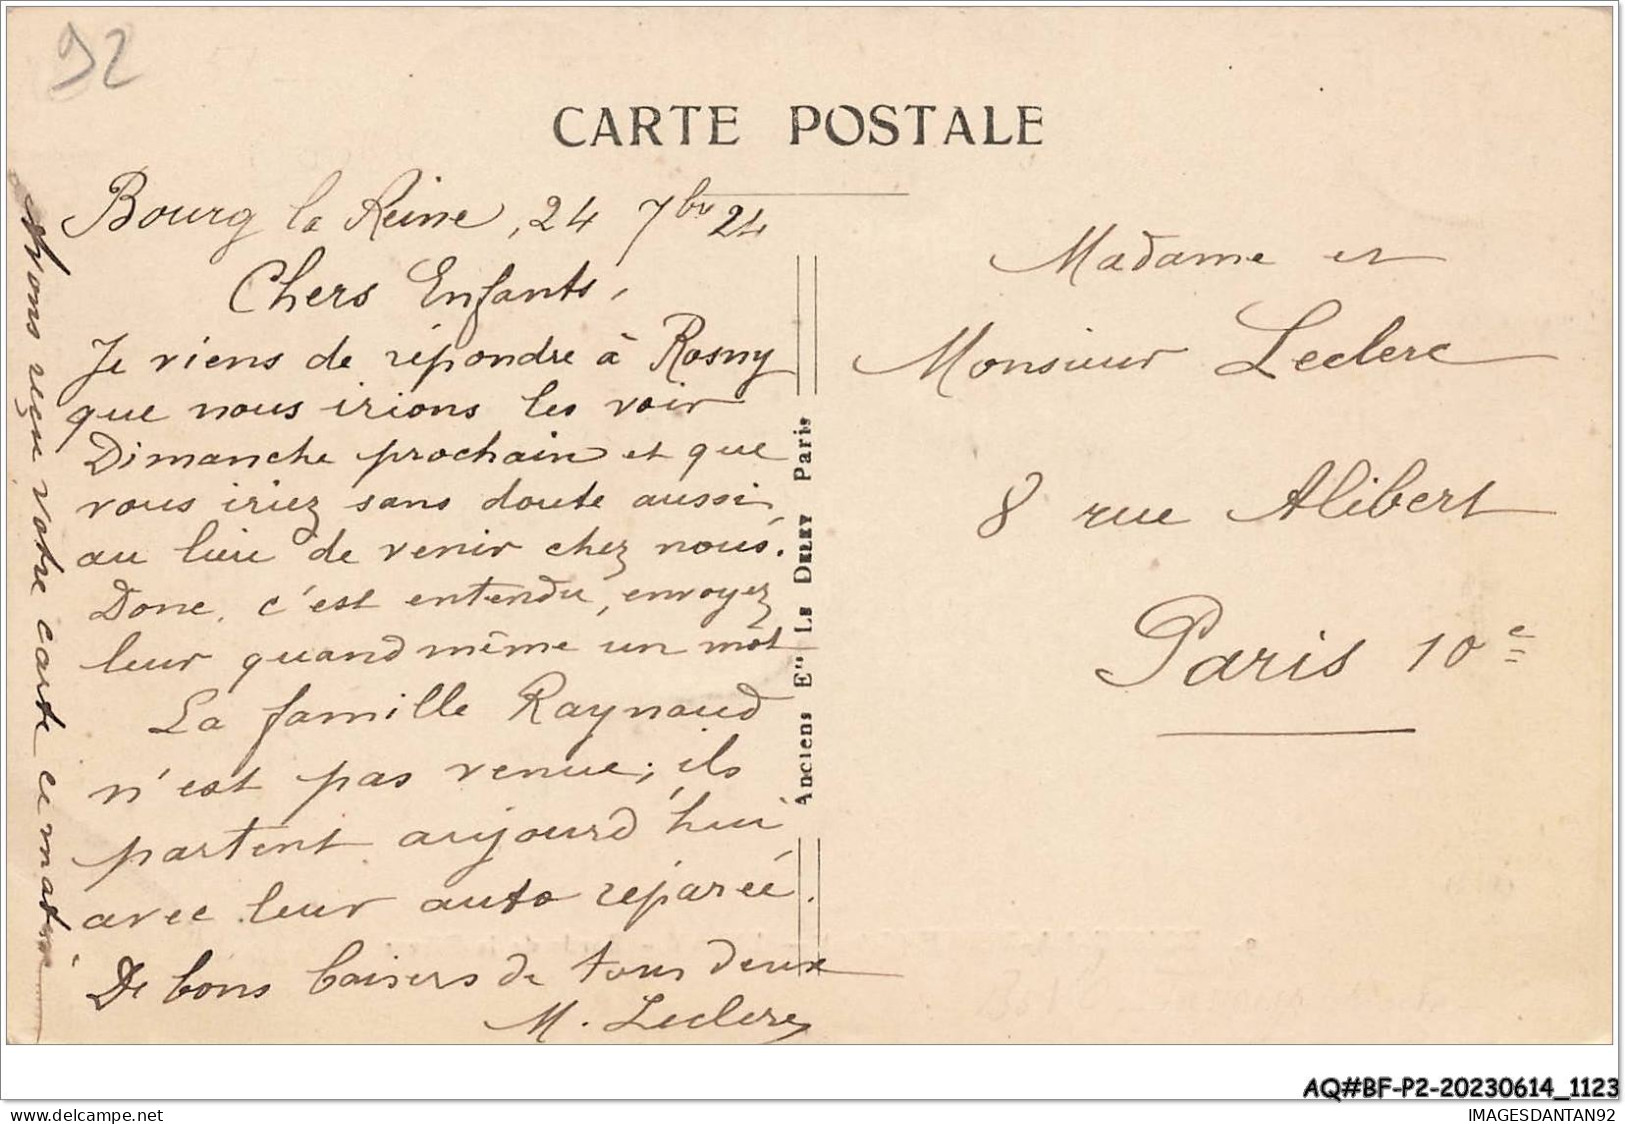 92
CARTE POSTALE
Bourg la Reine, 24 7bre 24
Chers Enfants,
Je viens de répondre à Rosny
que nous irions les voir
Dimanche prochain et que
vous iriez sans doute aussi
au lieu de venir chez nous.
Donc, c'est entendu, envoyez
leur quand même un mot
La famille Raynaud
n'est pas venue; ils
partent aujourd'hui
avec leur auto réparée.
De bons baisers de tous deux
M. Leclerc
Avons reçu votre carte ce matin
Anciens Ets LE DELEY Paris
Madame et
Monsieur Leclerc
8 rue Alibert
Paris 10e
AQ#BF-P2-20230614_1123
delcampe.net
IMAGESDANTAN92